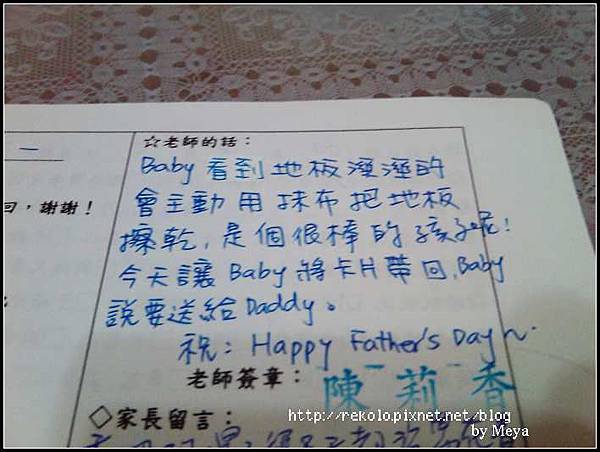 一
☆老師的話：
Baby 看到地板溼溼的
會主動用抹布把地板
回，謝謝！
擦乾，是個很棒的孩子呢！
今天讓 Baby 將卡片帶回，Baby
說要送給 Daddy。
祝：Happy Father's Day～
老師簽章：
陳莉香
◇家長留言：
http://rekolopixnet.net/blog
by Meya